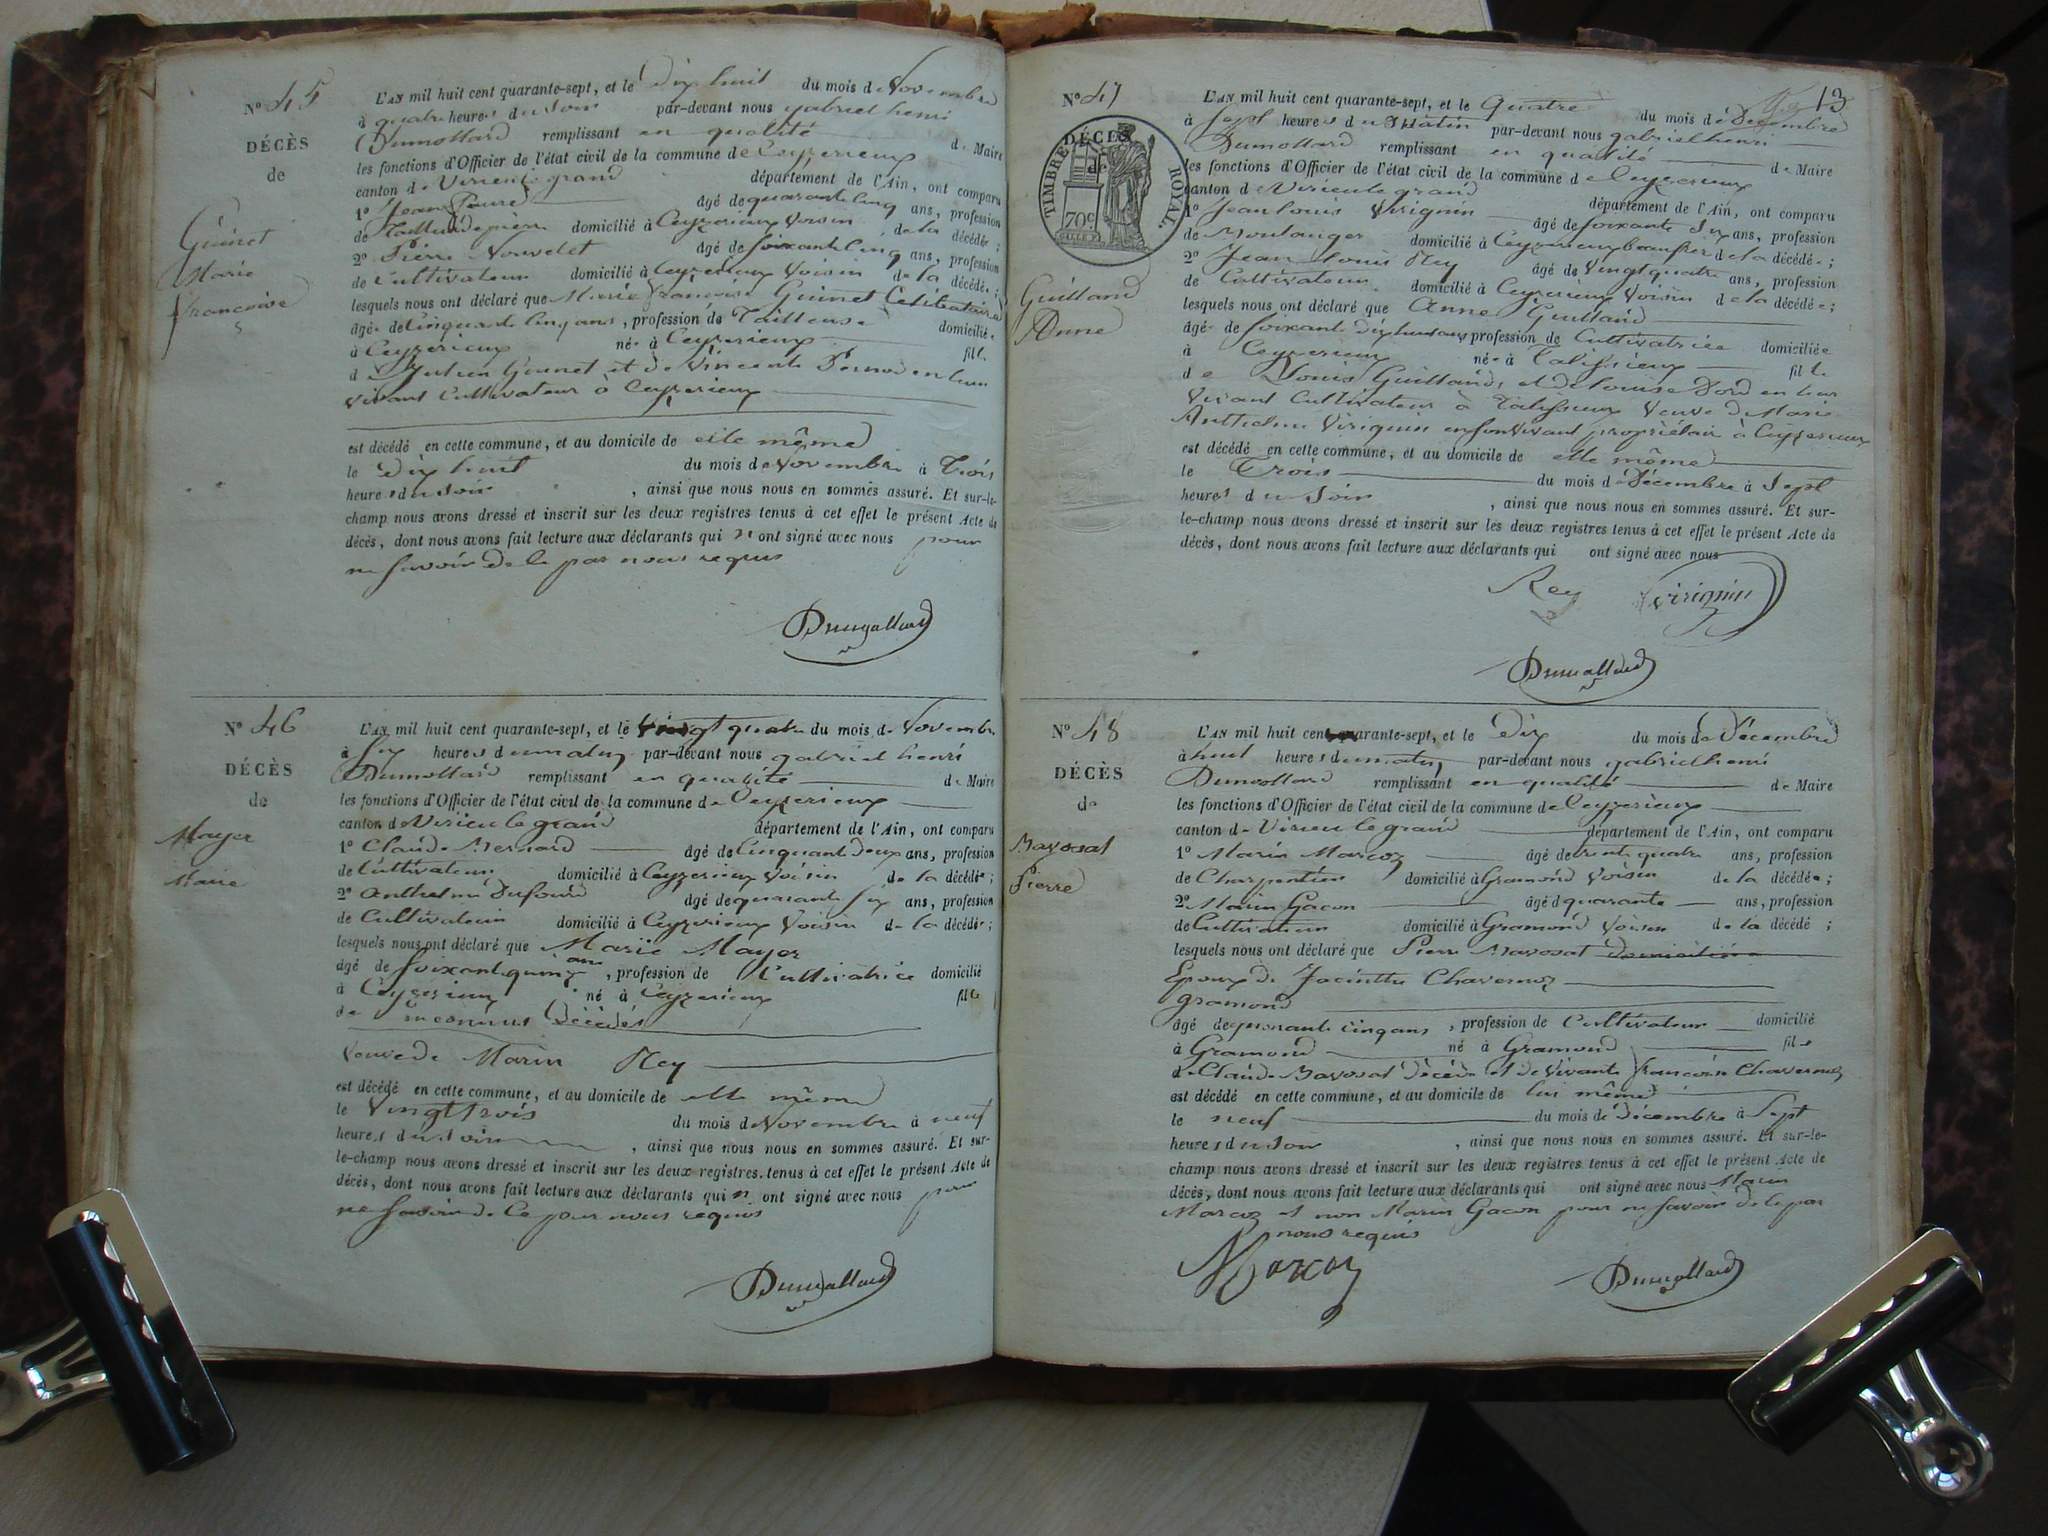 N° 45
DÉCÈS
de
Guinet
Marie
Francoise
L'AN mil huit cent quarante-sept, et le Dix huit du mois de Novembre
à quatre heures du Soir par-devant nous gabriel henri
Dumollard remplissant en qualité de Maire
les fonctions d'Officier de l'état civil de la commune de Ceyzerieux
canton de Virieu le grand département de l'Ain, ont comparu
1° Jean âgé de quarante cinq ans, profession
de Tailleur de pierre domicilié à Ceyzerieux Voisin de la décédée;
2° Pierre Nouvelet âgé de soixante cinq ans, profession
de Cultivateur domicilié à Ceyzerieux Voisin de la décédée;
lesquels nous ont déclaré que Marie françoise Guinet Célibataire
âgée de Cinquante cinq ans, profession de Tailleuse domiciliée
à Ceyzerieux née à Ceyzerieux fille
de Julien Guinet et de Vincente en leur
vivant Cultivateur à Ceyzerieux
est décédé en cette commune, et au domicile de elle même
le Dix huit du mois de Novembre à Trois
heures du Soir, ainsi que nous nous en sommes assuré. Et sur-le-
champ nous avons dressé et inscrit sur les deux registres tenus à cet effet le présent Acte de
décès, dont nous avons fait lecture aux déclarants qui n'ont signé avec nous pour
ne savoir de le par nous requis
Dumollard
N° 46
DÉCÈS
de
Mayer
Marie
L'AN mil huit cent quarante-sept, et le vingt quatre du mois de Novembre
à Six heures du matin par-devant nous gabriel henri
Dumollard remplissant en qualité de Maire
les fonctions d'Officier de l'état civil de la commune de Ceyzerieux
canton de Virieu le grand département de l'Ain, ont comparu
1° Claude Bernard âgé de Cinquante deux ans, profession
de Cultivateur domicilié à Ceyzerieux Voisin de la décédée;
2° Anthelme Dufour âgé de quarante six ans, profession
de Cultivateur domicilié à Ceyzerieux Voisin de la décédée;
lesquels nous ont déclaré que Marie Mayer
âgé de soixante quinze ans, profession de Cultivatrice domicilié
à Ceyzerieux né à Ceyzerieux fille
de inconnus Décédés
Veuve de Marin Rey
est décédé en cette commune, et au domicile de elle même
le Vingt trois du mois de Novembre à neuf
heures du soir, ainsi que nous nous en sommes assuré. Et sur-
le-champ nous avons dressé et inscrit sur les deux registres tenus à cet effet le présent Acte de
décès, dont nous avons fait lecture aux déclarants qui n'ont signé avec nous pour
ne savoir de Ce par nous requis
Dumollard
13
N° 47
DÉCÈS
de
TIMBRE ROYAL
70c
Guilland
Anne
L'AN mil huit cent quarante-sept, et le Quatre du mois de Décembre
à Sept heures du Matin par-devant nous gabriel henri
Dumollard remplissant en qualité de Maire
les fonctions d'Officier de l'état civil de la commune de Ceyzerieux
canton de Virieu le grand département de l'Ain, ont comparu
1° Jean Louis Virignin âgé de soixante dix ans, profession
de Boulanger domicilié à Ceyzerieux beaufrère de la décédée;
2° Jean Louis Rey âgé de Vingt quatre ans, profession
de Cultivateur domicilié à Ceyzerieux Voisin de la décédée;
lesquels nous ont déclaré que Anne Guilland
âgée de soixante dix huit ans profession de Cultivatrice domiciliée
à Ceyzerieux née à Talissieux fille
de Louis Guilland, et de Louise Dord en leur
Vivant Cultivateur à Talissieux Veuve de Marie
Anthelme Virignin en son vivant propriétair à Ceyzerieux
est décédé en cette commune, et au domicile de elle même
le Trois du mois de Décembre à Sept
heures du Soir, ainsi que nous nous en sommes assuré. Et sur-
le-champ nous avons dressé et inscrit sur les deux registres tenus à cet effet le présent Acte de
décès, dont nous avons fait lecture aux déclarants qui ont signé avec nous
Rey Virignin
Dumollard
N° 48
DÉCÈS
de
Bavosat
Pierre
L'AN mil huit cent quarante-sept, et le Dix du mois de Décembre
à huit heures du matin par-devant nous gabriel henri
Dumollard remplissant en qualité de Maire
les fonctions d'Officier de l'état civil de la commune de Ceyzerieux
canton de Virieu le grand département de l'Ain, ont comparu
1° Marin Marcoz âgé de trente quatre ans, profession
de Charpentier domicilié à Gramond Voisin de la décédée;
2° Marin Gacon âgé de quarante ans, profession
de Cultivateur domicilié à Gramond Voisin de la décédé;
lesquels nous ont déclaré que Pierre Bavosat
Epoux de Jacinthe Chavernoz
gramond
âgé de quarante cinq ans, profession de Cultivateur domicilié
à Gramond né à Gramond fils
de Claude Bavosat Décédé et de Vivante Françoise Chavernoz
est décédé en cette commune, et au domicile de lui même
le neuf du mois de Décembre à Sept
heures du Soir, ainsi que nous nous en sommes assuré. Et sur-le-
champ nous avons dressé et inscrit sur les deux registres tenus à cet effet le présent Acte de
décès, dont nous avons fait lecture aux déclarants qui ont signé avec nous Marin
Marcoz et non Marin Gacon pour ne savoir de le par
nous requis
Marcoz Dumollard